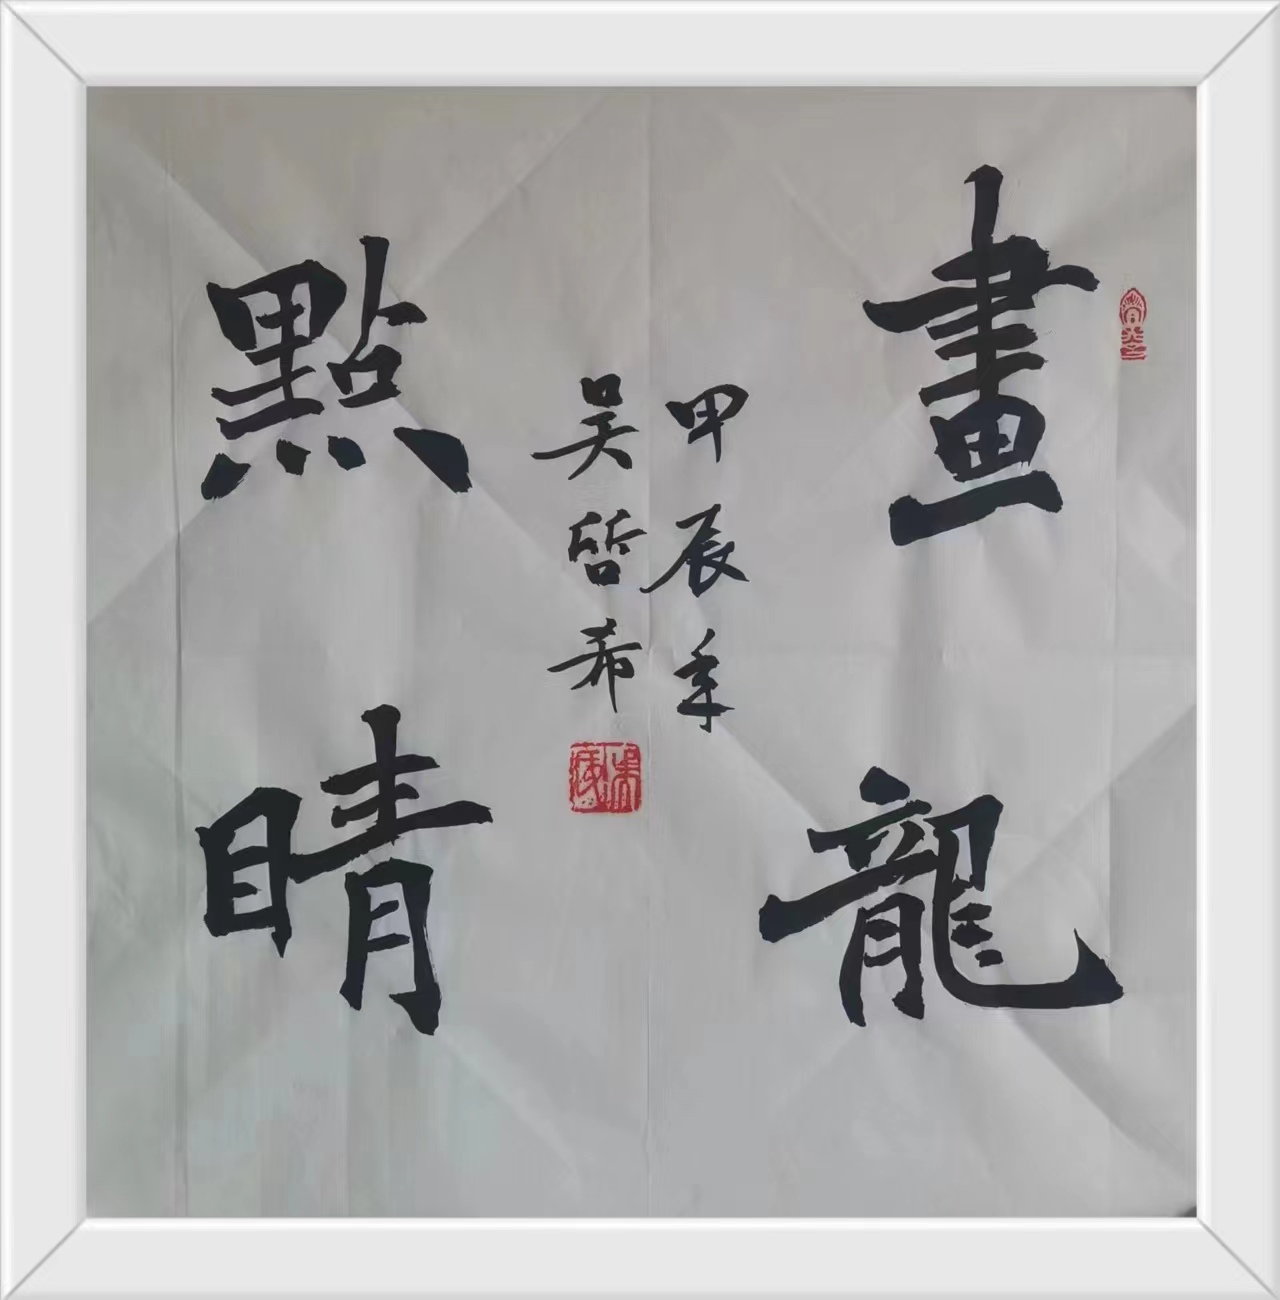 畫龍
點睛
甲辰年
吴哲希